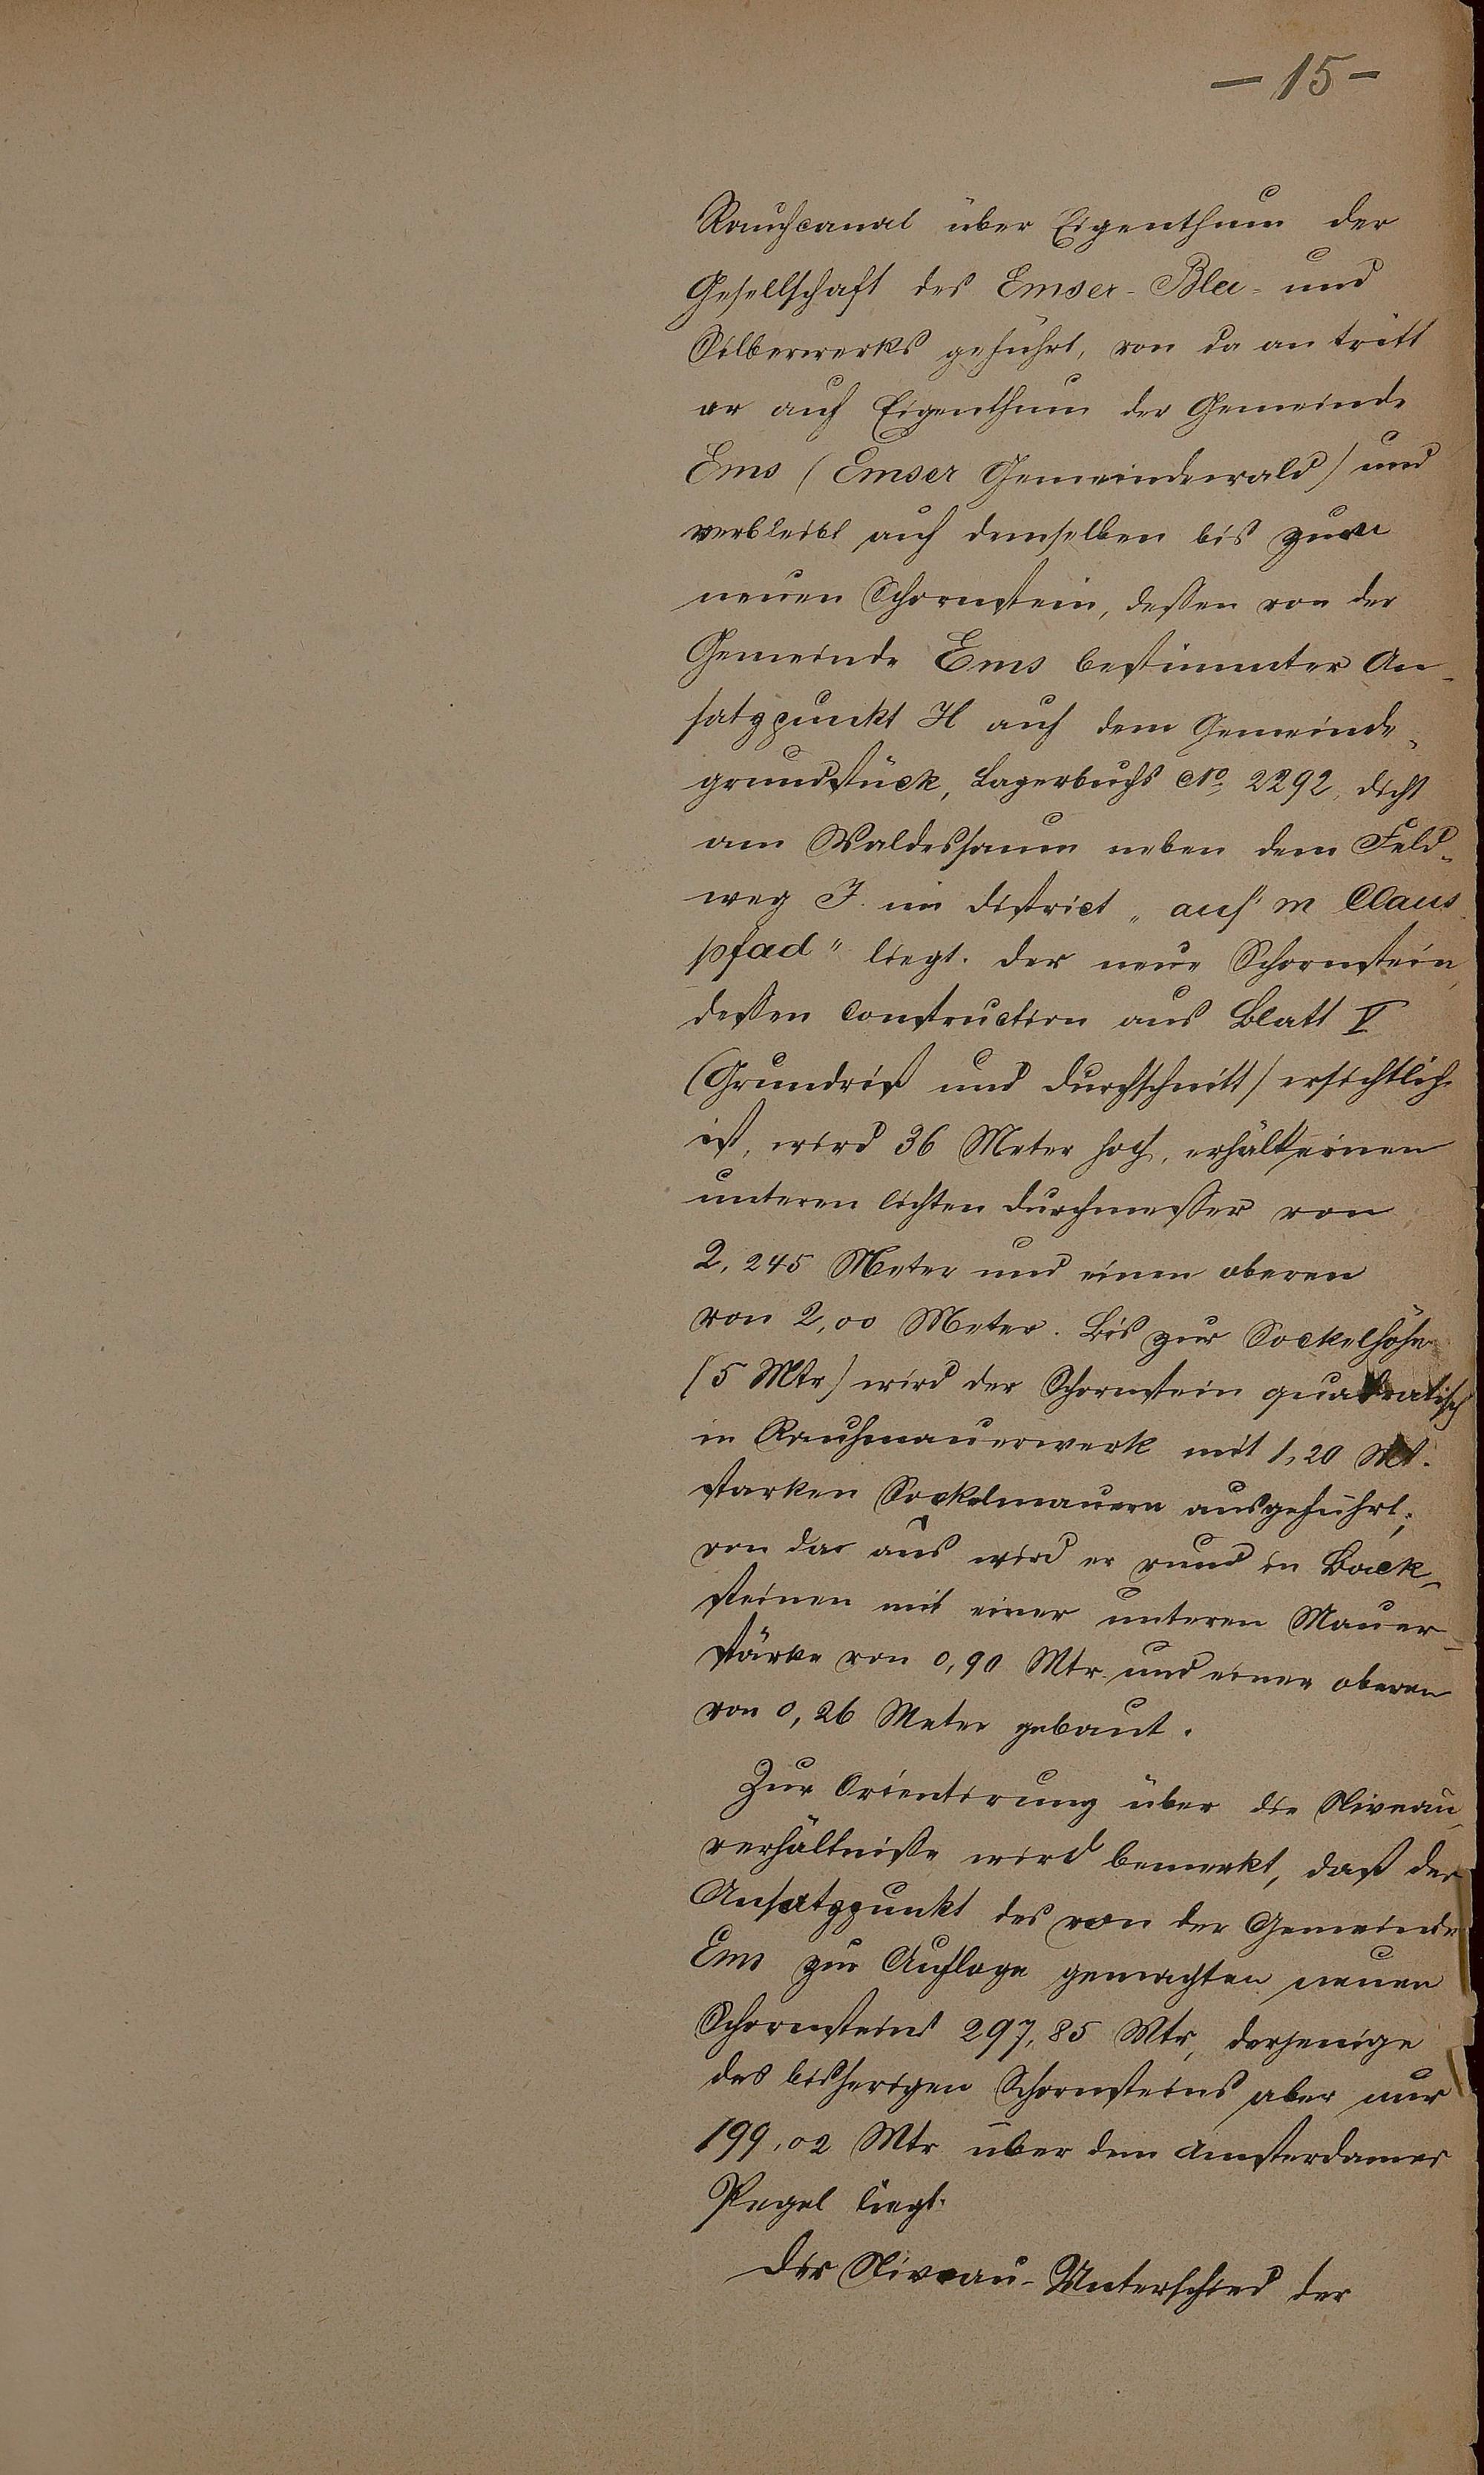 - 15 -
Rauchcanal über Eigenthum der
Gesellschaft des Emser-Blei- und
Silberwerks geführt, von da an tritt
er auf Eigenthum der Gemeinde
Ems (Emser Gemeindewald) und
verbleibt auf demselben bis zum
neuen Schornstein, dessen von der
Gemeinde Ems bestimmter An-
satzpunkt H auf dem Gemeinde-
grundstück, Lagerbuchs No 2292, dicht
am Waldessaum neben dem Feld-
weg J. im District „auf'm Claus-
pfad" liegt. Der neue Schornstein,
dessen Construction aus Blatt V
(Grundriß und Durchschnitt) ersichtlich
ist, wird 36 Meter hoch, erhält einen
unteren lichten Durchmesser von
2,245 Meter und einen oberen
von 2,00 Meter. Bis zur Sockelhöhe
(5 Mtr) wird der Schornstein quadratisch
in Rauhmauerwerk mit 1,20 Mt.
starken Sockelmauern ausgeführt;
von da aus wird er rund in Back-
steinen mit einer unteren Mauer-
stärke von 0,90 Mtr. und einer oberen
von 0,26 Meter gebaut.
Zur Orientirung über die Niveau-
verhältnisse wird bemerkt, daß der
Ansatzpunkt des von der Gemeinde
Ems zur Auflage gemachten neuen
Schornsteins 297,85 Mtr, derjenige
des bisherigen Schornsteins aber nur
199,02 Mtr über dem Amsterdamer
Pegel liegt.
Der Niveau-Unterschied der